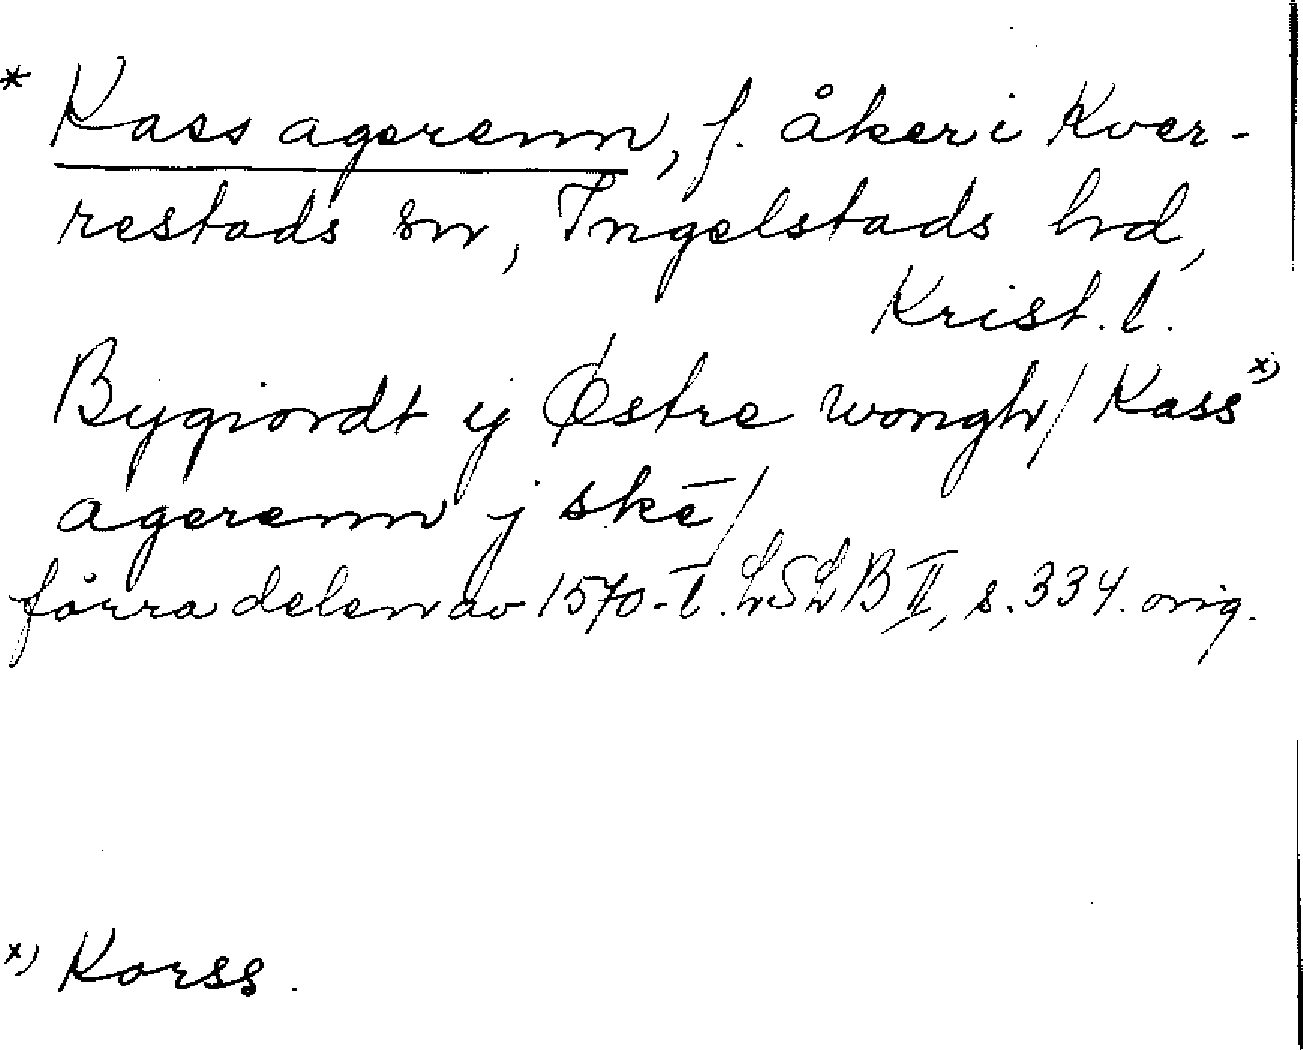 * Kass agerenn, f. åker i Kver-
restads sn, Ingelstads hd,
Krist. l.
Bygiordt ij Østre wongh/ Kass x)
agerenn j skē/
förra delen av 1570-t. LSLB II, s. 334. orig.
x) Korss.